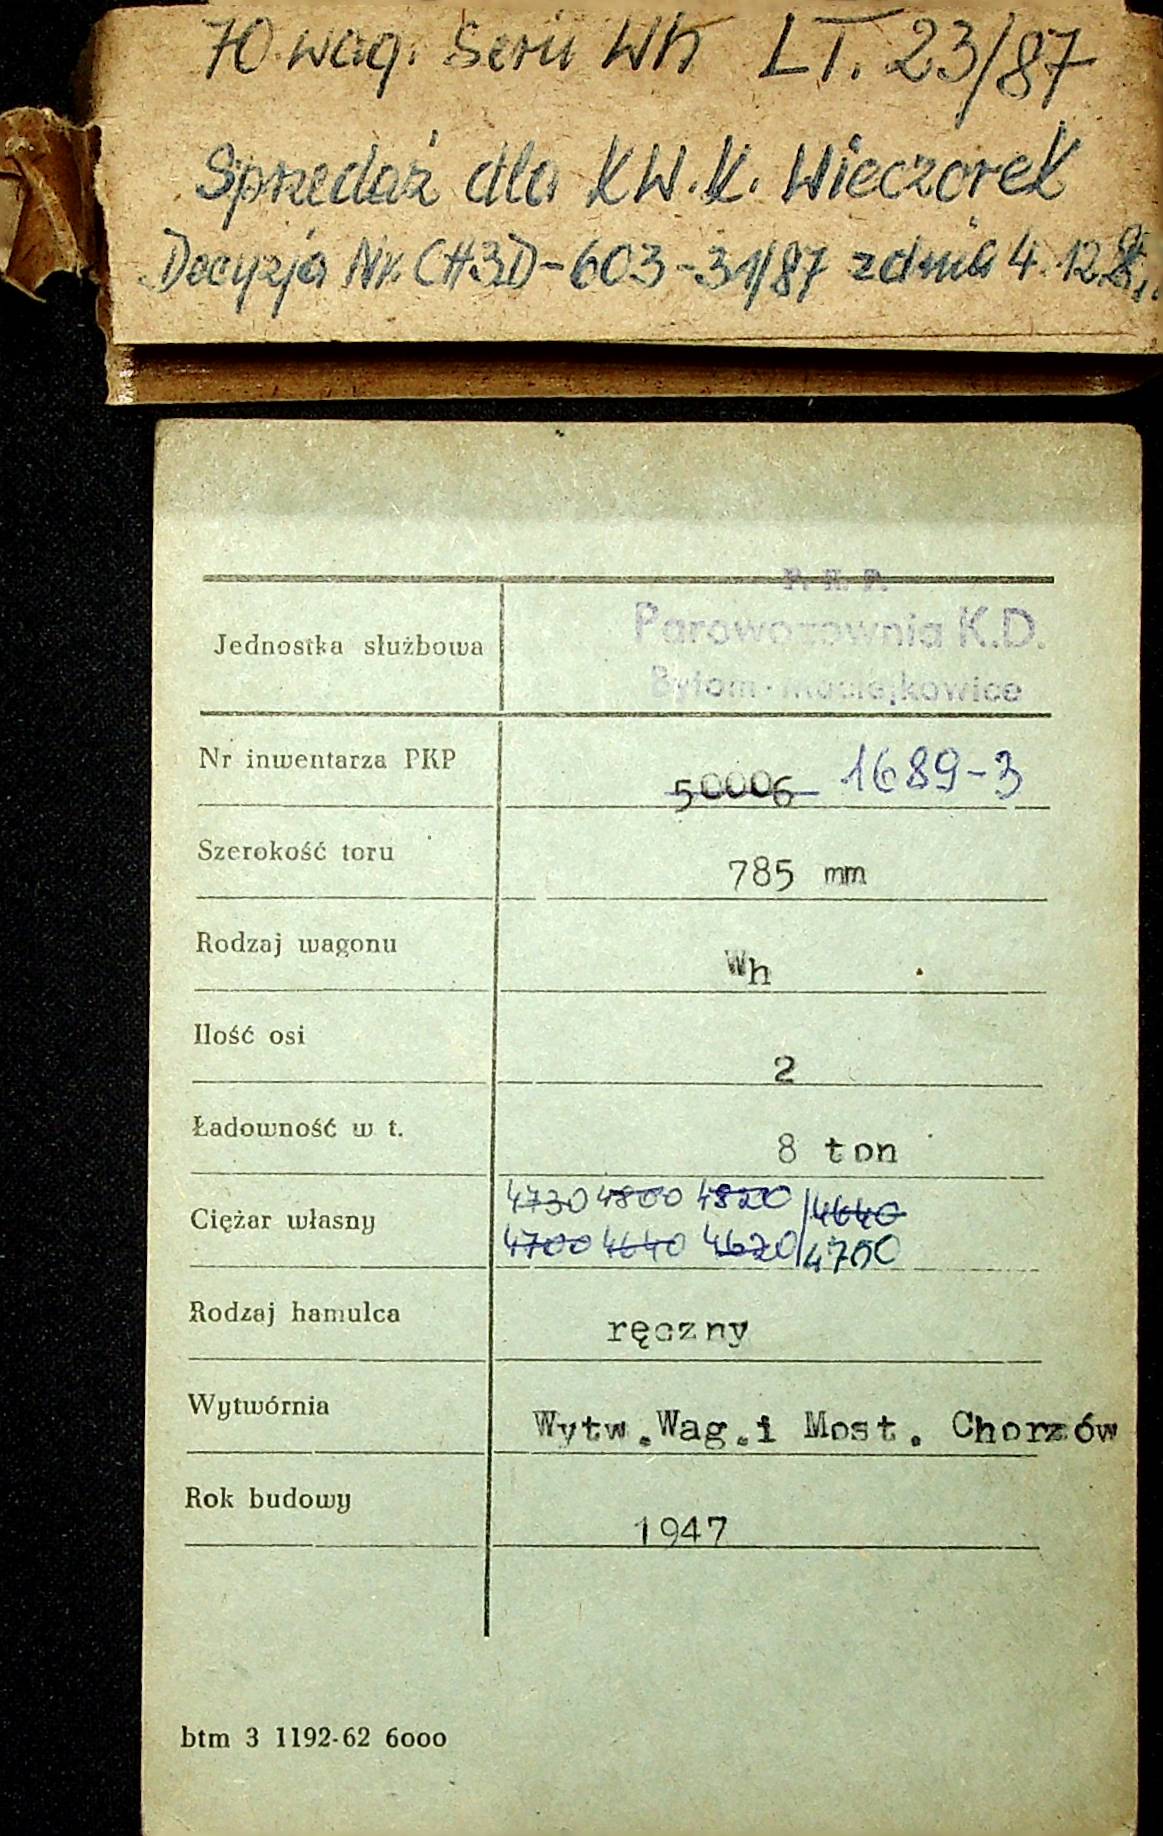 70 wag. Serii Wh LT. 23/87
Sprzedaż dla KW.K. Wieczorek
Decyzja Nr. CH3D-603-31/87 z dnia 4.12.
P. K. P.
Parowozownia K.D.
Bytom-Maciejkowice
Jednostka służbowa
Nr inwentarza PKP 50006 1689-3
Szerokość toru 785 mm
Rodzaj wagonu Wh
Ilość osi 2
Ładowność w t. 8 ton
4730 4800 4820 / 4640
Ciężar własny
4700 4640 4620 / 4750
Rodzaj hamulca ręczny
Wytwórnia Wytw.Wag.i Most. Chorzów
Rok budowy 1947
btm 3 1192-62 6000